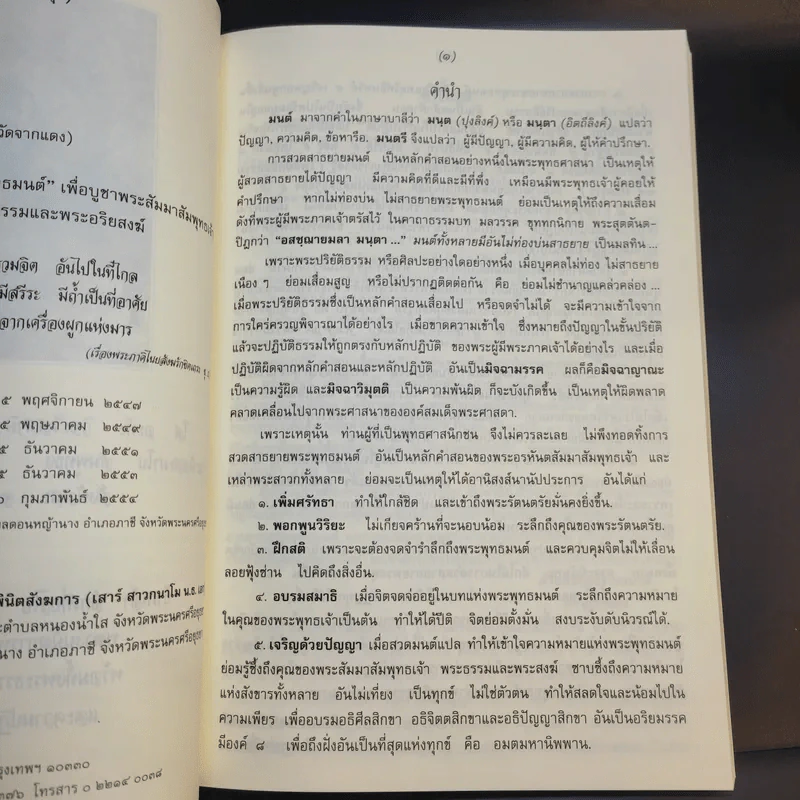 วัดจากแดง)
ธมนต์” เพื่อบูชาพระสัมมาสัมพุทธเจ้า
ธรรมและพระอริยสงฆ์
วมจิต อันไปในที่ไกล
มีสรีระ มีถ้ำเป็นที่อาศัย
จากเครื่องผูกแห่งมาร
๕ พฤศจิกายน ๒๕๔๗
๕ พฤษภาคม ๒๕๔๙
๕ ธันวาคม ๒๕๕๑
๕ ธันวาคม ๒๕๕๓
๖ กุมภาพันธ์ ๒๕๕๔
ลดอนหญ้านาง อำเภอภาชี จังหวัดพระนครศรีอยุธ
พินิตสังฆการ (เสาร์ สาวกนาโม น.ธ. เอก
ะตำบลหนองน้ำใส จังหวัดพระนครศรีอยุธยา
นาง อำเภอภาชี จังหวัดพระนครศรีอยุธยา
รุงเทพฯ ๑๐๓๓๐
๓๗๖ โทรสาร ๐ ๒๒๑๔ ๐๐๓๘
(๑)
คำนำ
มนต์ มาจากคำในภาษาบาลีว่า มนฺต (ปุงลิงค์) หรือ มนฺตา (อิตถีลิงค์) แปลว่า
ปัญญา, ความคิด, ข้อหารือ. มนตรี จึงแปลว่า ผู้มีปัญญา, ผู้มีความคิด, ผู้ให้คำปรึกษา.
การสวดสาธยายมนต์ เป็นหลักคำสอนอย่างหนึ่งในพระพุทธศาสนา เป็นเหตุให้
ผู้สวดสาธยายได้ปัญญา มีความคิดที่ดีและมีที่พึ่ง เหมือนมีพระพุทธเจ้าผู้คอยให้
คำปรึกษา หากไม่ท่องบ่น ไม่สาธยายพระพุทธมนต์ ย่อมเป็นเหตุให้ถึงความเสื่อม
ดังที่พระผู้มีพระภาคเจ้าตรัสไว้ ในคาถาธรรมบท มลวรรค ขุททกนิกาย พระสุตตันต-
ปิฎกว่า “อสชฺฌายมลา มนฺตา ...” มนต์ทั้งหลายมีอันไม่ท่องบ่นสาธยาย เป็นมลทิน ...
เพราะพระปริยัติธรรม หรือศิลปะอย่างใดอย่างหนึ่ง เมื่อบุคคลไม่ท่อง ไม่สาธยาย
เนือง ๆ ย่อมเสื่อมสูญ หรือไม่ปรากฏติดต่อกัน คือ ย่อมไม่ชำนาญแคล่วคล่อง ...
เมื่อพระปริยัติธรรมซึ่งเป็นหลักคำสอนเสื่อมไป หรือจดจำไม่ได้ จะมีความเข้าใจจาก
การใคร่ครวญพิจารณาได้อย่างไร เมื่อขาดความเข้าใจ ซึ่งหมายถึงปัญญาในขั้นปริยัติ
แล้วจะปฏิบัติธรรมให้ถูกตรงกับหลักปฏิบัติ ของพระผู้มีพระภาคเจ้าได้อย่างไร และเมื่อ
ปฏิบัติผิดจากหลักคำสอนและหลักปฏิบัติ อันเป็นมิจฉามรรค ผลก็คือมิจฉาญาณะ
เป็นความรู้ผิด และมิจฉาวิมุตติ เป็นความพ้นผิด ก็จะบังเกิดขึ้น เป็นเหตุให้ผิดพลาด
คลาดเคลื่อนไปจากพระศาสนาขององค์สมเด็จพระศาสดา.
เพราะเหตุนั้น ท่านผู้ที่เป็นพุทธศาสนิกชน จึงไม่ควรละเลย ไม่พึงทอดทิ้งการ
สวดสาธยายพระพุทธมนต์ อันเป็นหลักคำสอนของพระอรหันตสัมมาสัมพุทธเจ้า และ
เหล่าพระสาวกทั้งหลาย ย่อมจะเป็นเหตุให้ได้อานิสงส์นานัปประการ อันได้แก่
๑. เพิ่มศรัทธา ทำให้ใกล้ชิด และเข้าถึงพระรัตนตรัยมั่นคงยิ่งขึ้น.
๒. พอกพูนวิริยะ ไม่เกียจคร้านที่จะนอบน้อม ระลึกถึงคุณของพระรัตนตรัย.
๓. ฝึกสติ เพราะจะต้องจดจำรำลึกถึงพระพุทธมนต์ และควบคุมจิตไม่ให้เลื่อน
ลอยฟุ้งซ่าน ไปคิดถึงสิ่งอื่น.
๔. อบรมสมาธิ เมื่อจิตจดจ่ออยู่ในบทแห่งพระพุทธมนต์ ระลึกถึงความหมาย
ในคุณของพระพุทธเจ้าเป็นต้น ทำให้ได้ปีติ จิตย่อมตั้งมั่น สงบระงับดับนิวรณ์ได้.
๕. เจริญด้วยปัญญา เมื่อสวดมนต์แปล ทำให้เข้าใจความหมายแห่งพระพุทธมนต์
ย่อมรู้ซึ้งถึงคุณของพระสัมมาสัมพุทธเจ้า พระธรรมและพระสงฆ์ ซาบซึ้งถึงความหมาย
แห่งสังขารทั้งหลาย อันไม่เที่ยง เป็นทุกข์ ไม่ใช่ตัวตน ทำให้สลดใจและน้อมไปใน
ความเพียร เพื่ออบรมอธิศีลสิกขา อธิจิตตสิกขาและอธิปัญญาสิกขา อันเป็นอริยมรรค
มีองค์ ๘ เพื่อถึงฝั่งอันเป็นที่สุดแห่งทุกข์ คือ อมตมหานิพพาน.